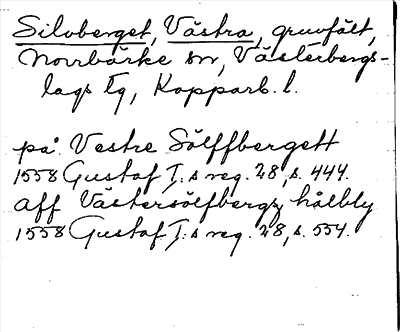 Silvberget, Västra, gruvfält,
Norrbärke sn, Västerbergs-
lags tg, Kopparb. l.
på Vestre Sölffbergett
1558 Gustaf I:s reg. 28, s. 444.
aff Västersölfbergz hålbly
1558 Gustaf I:s reg. 28, s. 554.